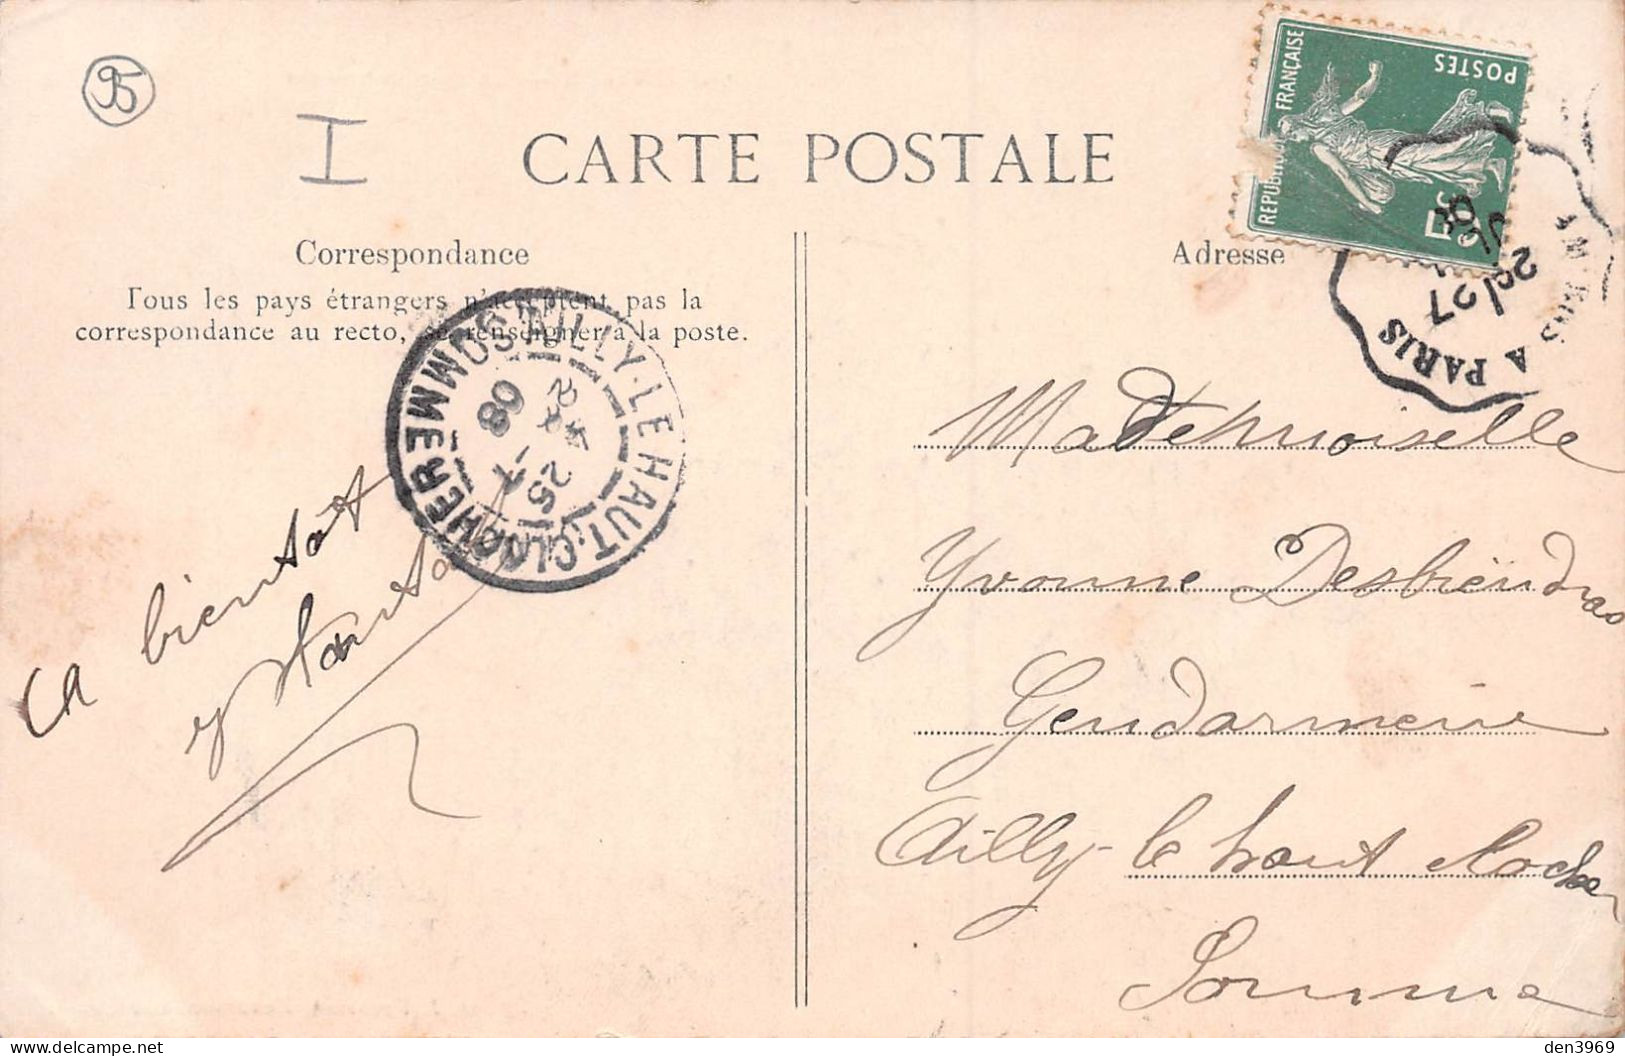 95
I
CARTE POSTALE
REPUBLIQUE FRANÇAISE
POSTES
5c
Correspondance
Tous les pays étrangers n'acceptent pas la
correspondance au recto, se renseigner à la poste.
Adresse
A PARIS
27
AILLY-LE HAUT-CLOCHER
SOMME
25
08
à bientot
Mademoiselle
Yvonne Desbiendras
Gendarmerie
Ailly-le haut clocher
Somme
den3969